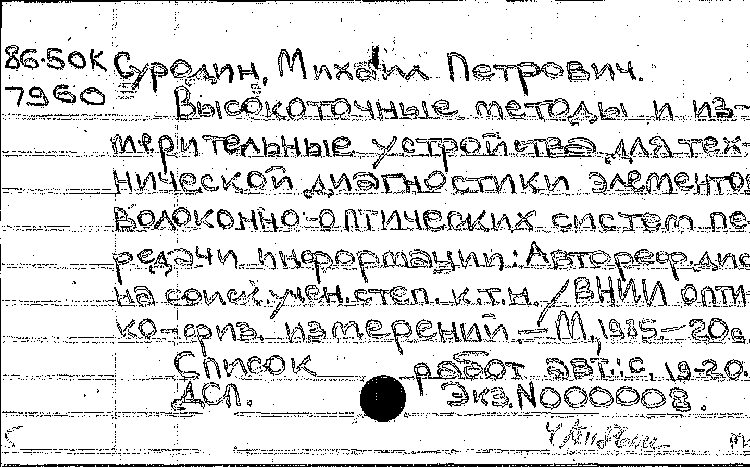 86-50К Суродин, Михаил Петрович.
7960 Высокоточные методы и из-
мерительные устройства для тех-
нической диагностики элементов
волоконно-оптических систем пе-
редачи информации: Автореф. дис
на соиск. учен. степ. к.т.н. / ВНИИ опти-
ко-физ. измерений. – М., 1985. – 20с
Список работ авт.: с. 19-20.
ДСП. Экз. N000008.